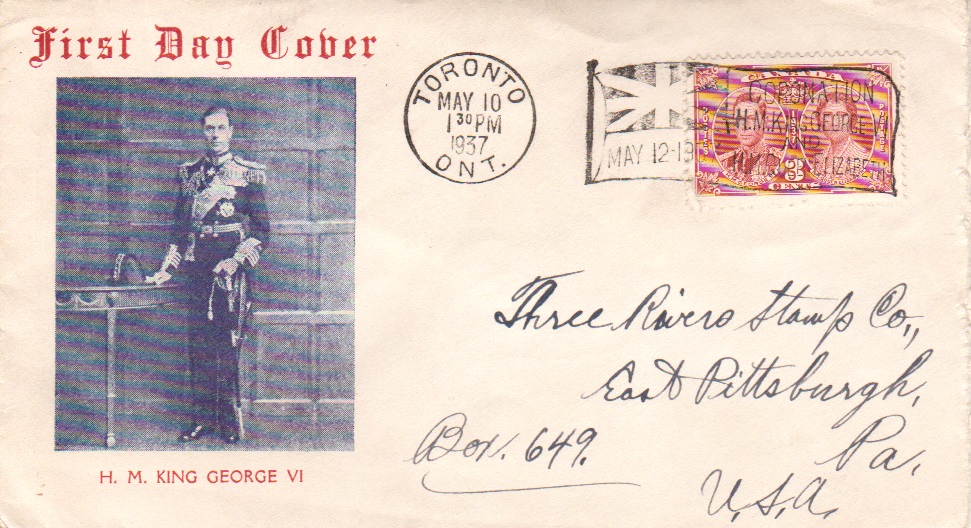 First Day Cover
TORONTO
MAY 10
1 30 PM
1937
ONT.
CORONATION
H.M. KING GEORGE VI
AND
ELIZABETH
MAY 12-19
CANADA
POSTES
POSTAGE
3
CENTS
Three Rivers Stamp Co.,
East Pittsburgh,
Box. 649.
Pa,
U.S.A.
H. M. KING GEORGE VI